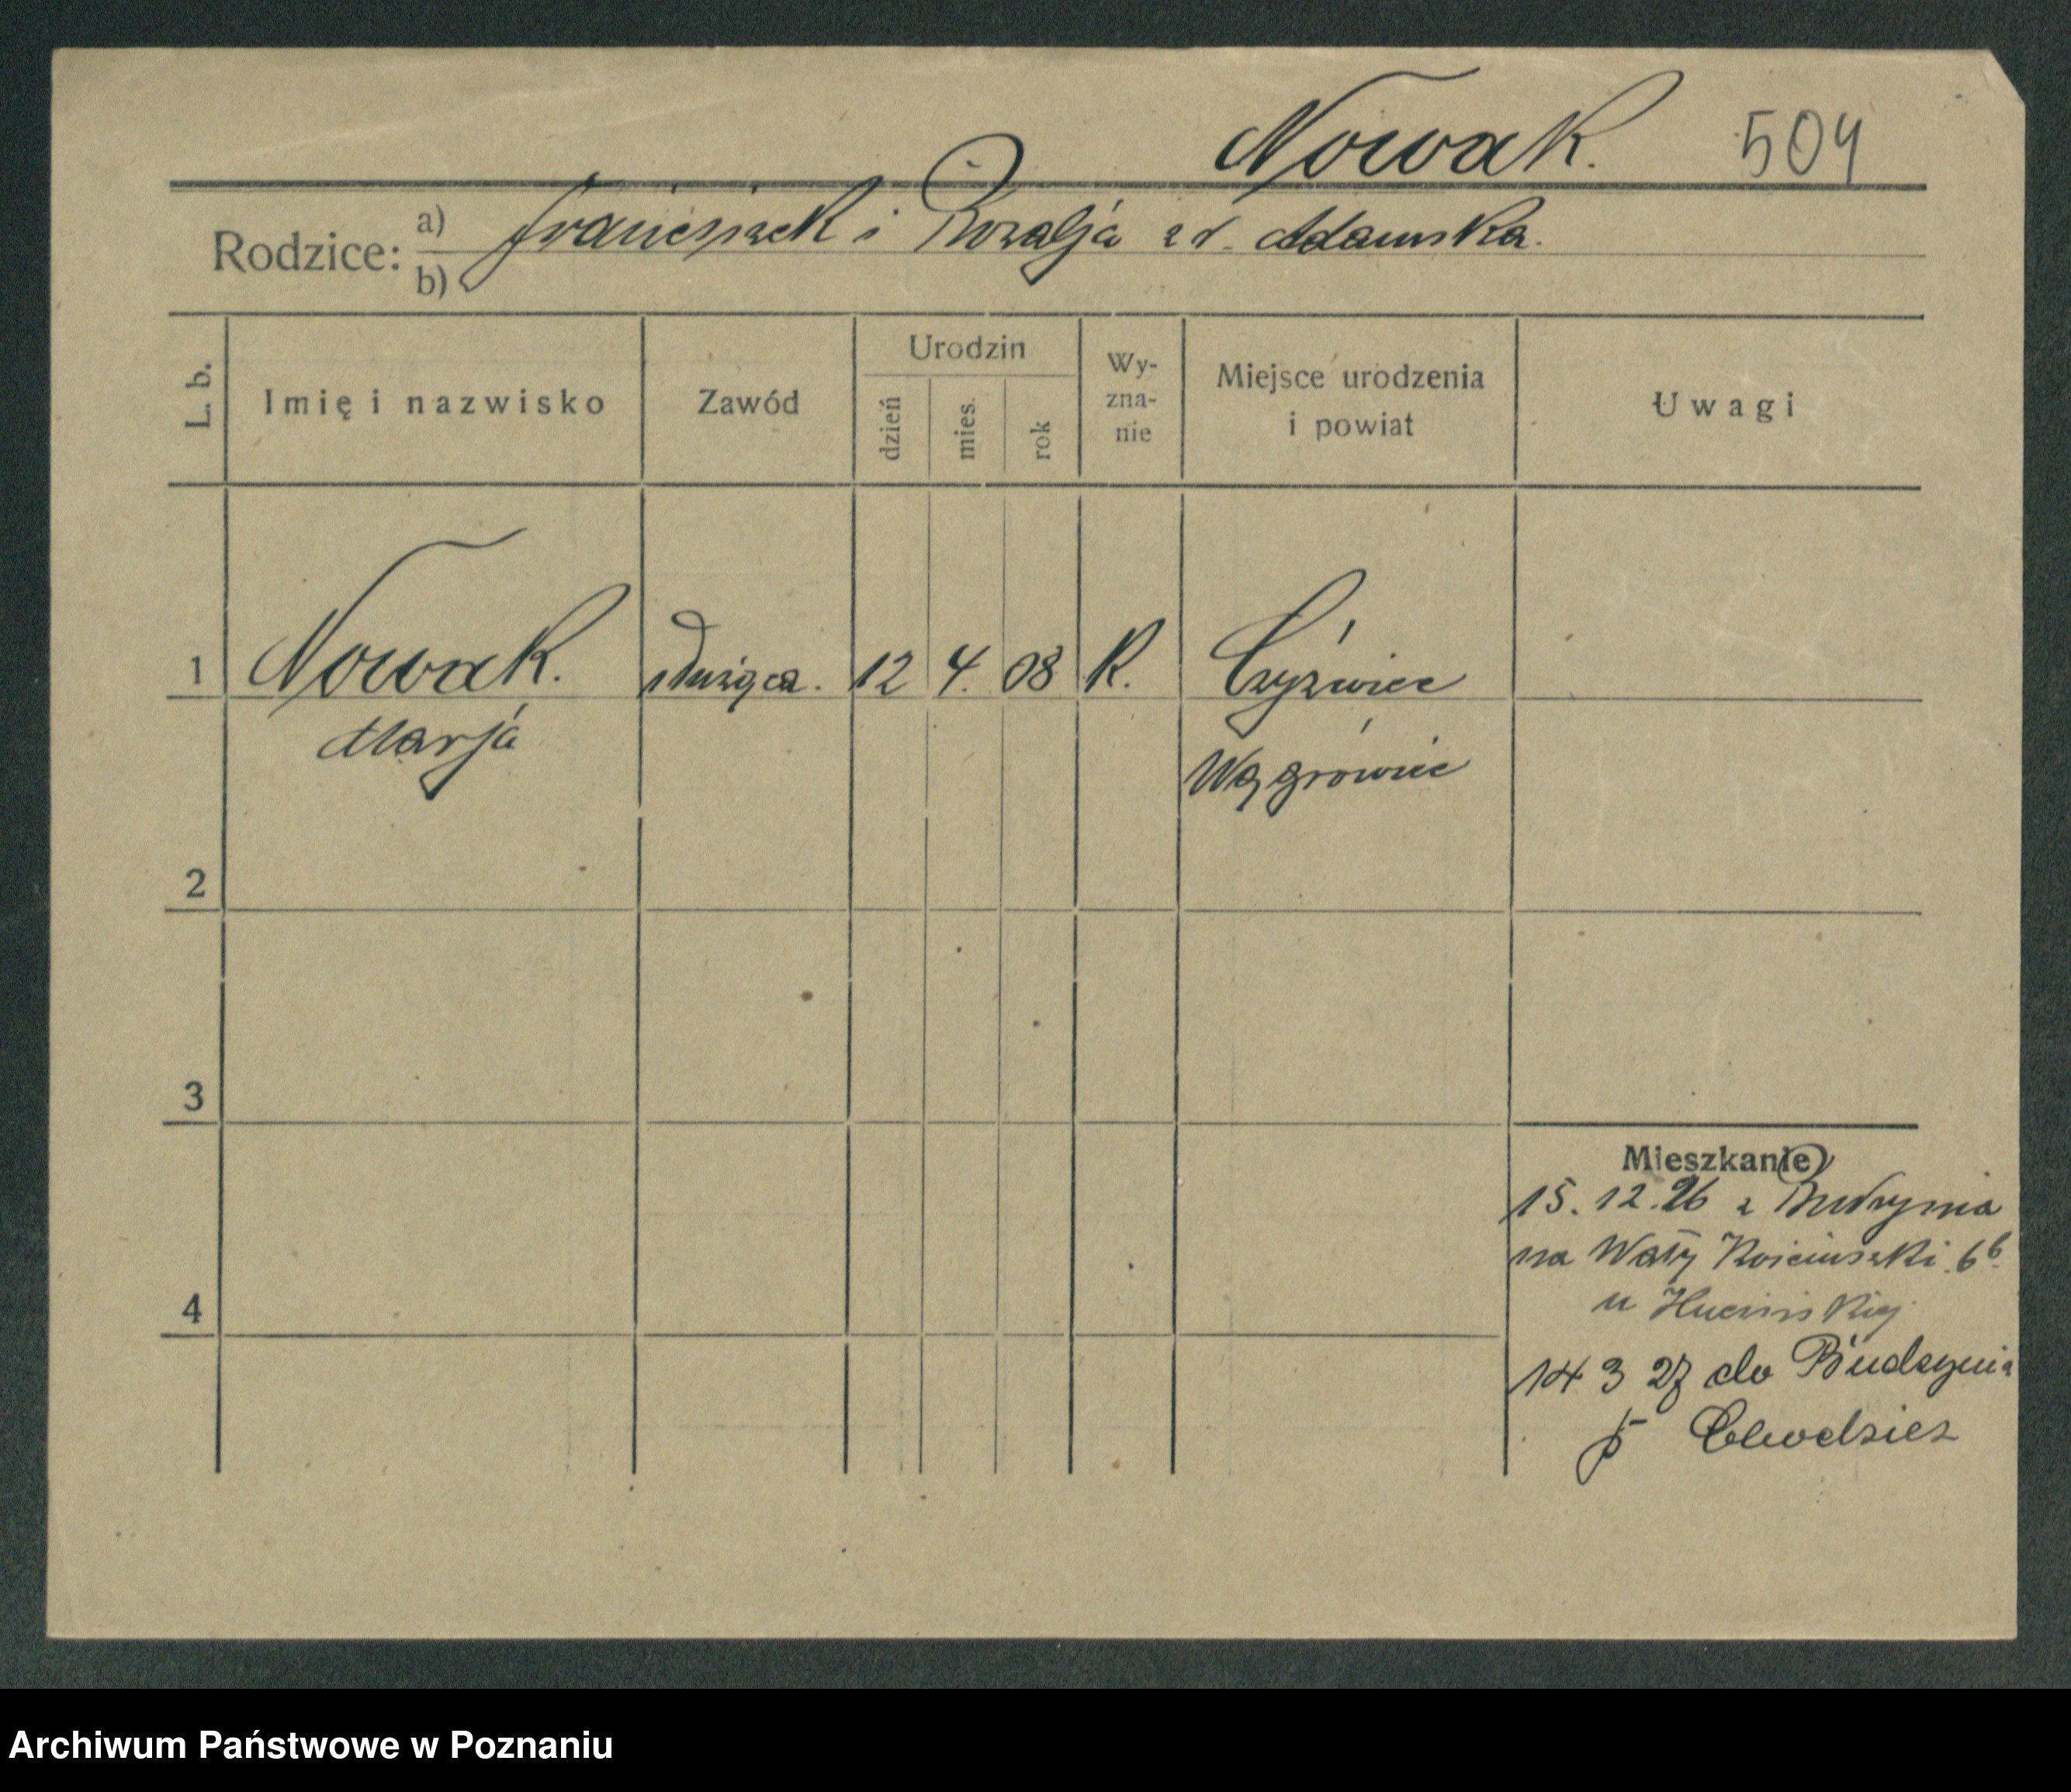 Nowak. 504
Rodzice: a) Franciszek i Rozalja z d. Adamska.
b)
L. b. Imię i nazwisko Zawód Urodzin dzień mies. rok Wy-zna-nie Miejsce urodzenia i powiat Uwagi
1 Nowak. służąca. 12 4. 08 K. Czyżwiec
Marja Wągrówiec
2
3
Mieszkanie
15. 12. 26 z Budzynia
na Wały Kościuszki 6b.
4
14 3 27 do Budzynia
p Chodzież
Archiwum Państwowe w Poznaniu